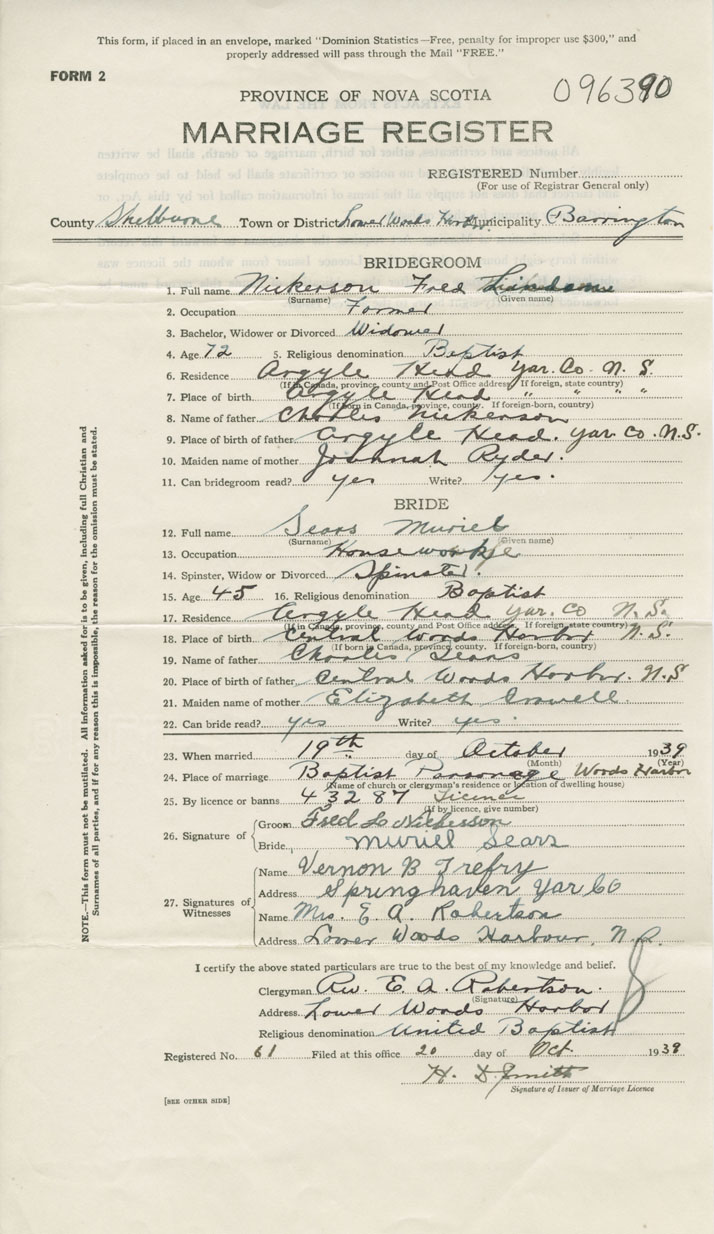 This form, if placed in an envelope, marked "Dominion Statistics—Free, penalty for improper use $300," and
properly addressed will pass through the Mail "FREE."
FORM 2
PROVINCE OF NOVA SCOTIA
096390
MARRIAGE REGISTER
REGISTERED Number
(For use of Registrar General only)
County Shelburne Town or District Lower Woods Harbor Municipality Barrington
BRIDEGROOM
1. Full name Nickerson Fred
(Surname) (Given name)
2. Occupation Farmer
3. Bachelor, Widower or Divorced Widower
4. Age 72 5. Religious denomination Baptist
6. Residence Argyle Head Yar. Co. N. S.
(If in Canada, province, county and Post Office address. If foreign, state country)
7. Place of birth Argyle Head " " " "
(If born in Canada, province, county. If foreign-born, country)
8. Name of father Charles Nickerson
9. Place of birth of father Argyle Head. Yar Co. N.S.
10. Maiden name of mother Joannah Ryder.
11. Can bridegroom read? yes Write? yes.
BRIDE
12. Full name Sears Muriel
(Surname) (Given name)
13. Occupation Housework
14. Spinster, Widow or Divorced Spinster.
15. Age 45 16. Religious denomination Baptist
17. Residence Argyle Head Yar. Co N. S.
(If in Canada, province, county and Post Office address. If foreign, state country)
18. Place of birth Central Woods Harbor N. S.
(If born in Canada, province, county. If foreign-born, country)
19. Name of father Charles Sears
20. Place of birth of father Central Woods Harbor. N.S
21. Maiden name of mother Elizabeth Crowell
22. Can bride read? yes Write? yes.
23. When married 19th day of October 1939
(Month) (Year)
24. Place of marriage Baptist Parsonage Woods Harbor
(Name of church or clergyman's residence or location of dwelling house)
25. By licence or banns 43287 License
(If by licence, give number)
26. Signature of Groom Fred L Nickerson
Bride Muriel Sears
27. Signatures of Witnesses Name Vernon B Trefry
Address Springhaven Yar Co
Name Mrs. E. A. Robertson
Address Lower Woods Harbour, N.S.
I certify the above stated particulars are true to the best of my knowledge and belief.
Clergyman Rev. E. A. Robertson.
(Signature)
Address Lower Woods Harbor
Religious denomination United Baptist
Registered No. 61 Filed at this office 20 day of Oct. 1939
H. D. Smith
Signature of Issuer of Marriage Licence
[SEE OTHER SIDE]
NOTE.—This form must not be mutilated. All information asked for is to be given, including full Christian and
Surnames of all parties, and if for any reason this is impossible, the reason for the omission must be stated.